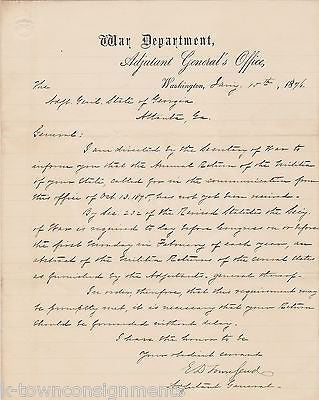 War Department,
Adjutant General's Office,
Washington, Jan'y 10th, 1876.
The
Adjt. Genl. State of Georgia
Atlanta Ga.
General:
I am directed by the Secretary of War to
inform you that the Annual Return of the Militia
of your State, called for in the communication from
this office of Oct. 13. 1875, has not yet been received.
By Sec. 232 of the Revised Statutes the Sec'y
of War is required to lay before Congress on or before
the first Monday in February of each year, an
abstract of the Militia Returns of the several States
as furnished by the Adjutants general thereof.
In order, therefore, that this requirement may
be promptly met, it is necessary that your Return
should be forwarded without delay.
I have the honor to be
Your obedient servant
E D Townsend
Adjutant General.
k-townconsignments